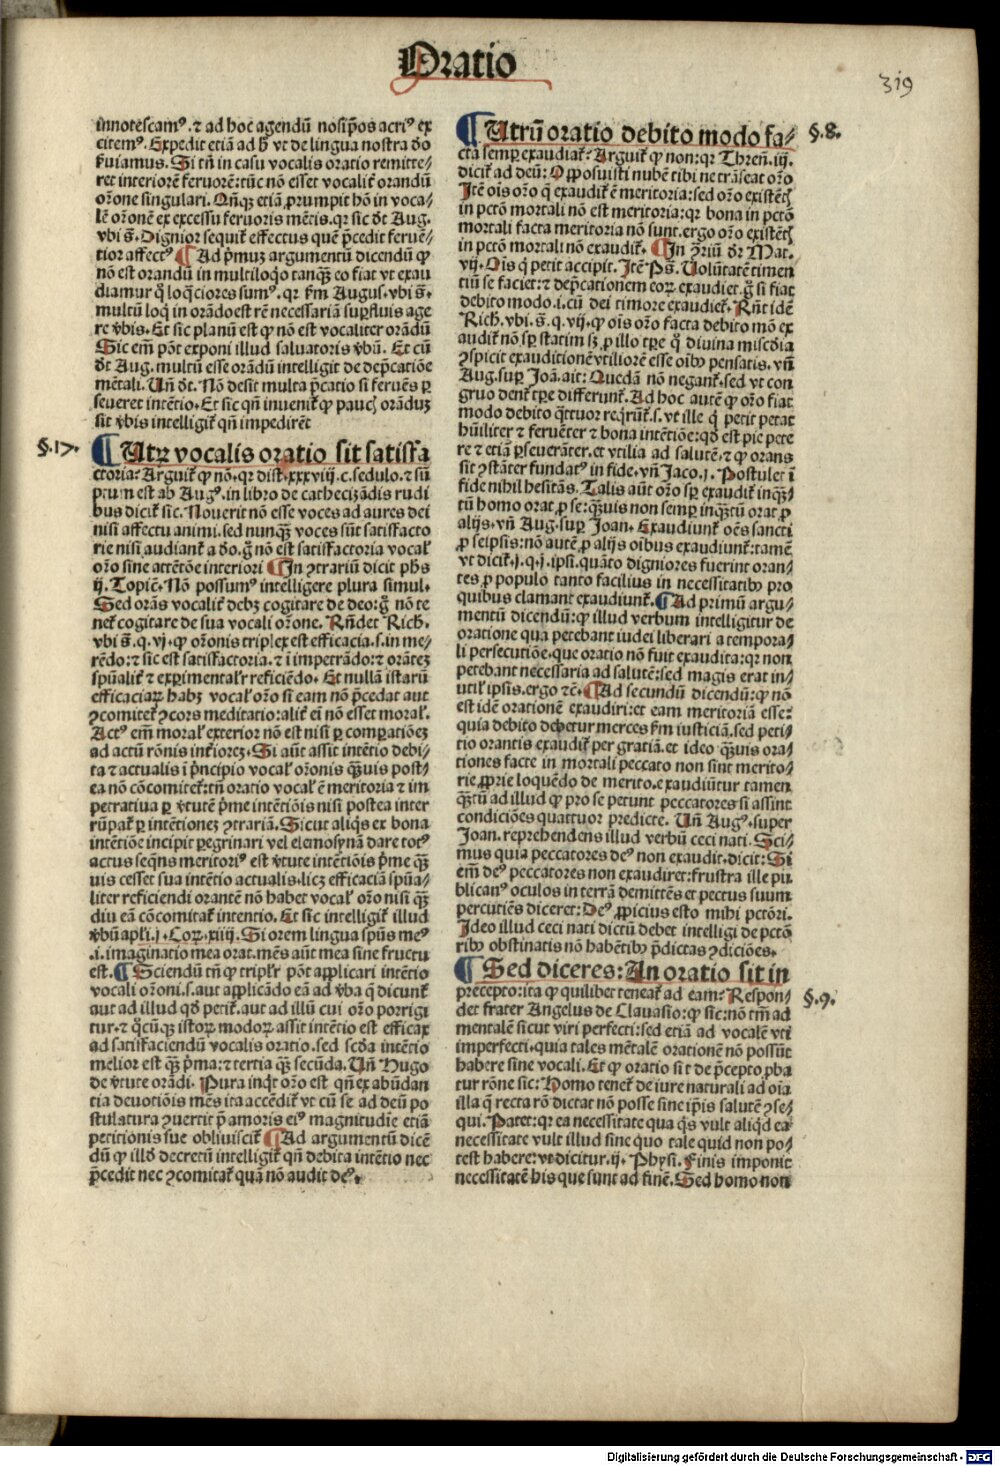 Oratio
319
innotescamꝰ. ⁊ ad hoc agendū nosip̄os acriꝰ ex
citemꝰ. Expedit etiā ad h̄ vt de lingua nostra d̄o
ẜuiamus. Si tn̄ in casu vocalis oratio remitte⸗
ret interiorē feruorē: tūc nō esset vocalit̄ orandū
orōne singulari. Qn̄q; etiā ꝓrumpit hō in voca⸗
lē orōnē ex excessu feruoris mētis. qꝛ sic d̄t Aug.
vbi s̄. Dignior sequit̄ effectus quē p̄cedit feruē⸗
tior affectꝰ ¶ Ad p̄muꝫ argumentū dicendū ꝙ
nō est orandū in multiloq̄o tanqꝫ eo fiat vt exau
diamur q̄ loq̄ciores sumꝰ. qꝛ fm̄ Augus. vbi s̄.
multū loq̄ in orādo est rē necessariā suꝑfluis age
re v̄bis. Et sic planū est ꝙ nō est vocaliter orādū
Sic em̄ pōt exponi illud saluatoris v̄bū. Et cū
d̄t Aug. multū esse orādū intelligit de dep̄catiōe
mētali. Un̄ d̄t. Nō desit multa p̄catio si feruēs ꝑ
seueret intētio. Et sic qn̄ inuenit̄ ꝙ pauci orāduꝫ
sit v̄bis intelligit̄ qn̄ impedirēt
§. 17.
¶ Utꝝ vocalis oratio sit satisfa
ctoria: Arguit̄ ꝙ nō. qꝛ dist. xxxviij. c. sedulo. ⁊ sū
ptum est ab Augꝰ. in libro de cathecizādis rudi
bus dicit̄ sic. Nouerit nō esse voces ad aures dei
nisi affectu animi. sed nunqꝫ voces sūt satisfacto
rie nisi audiant̄ a d̄o. g̊ nō est satisfactoria vocal̓
orō sine attētōe interiori ¶ In ꝯtrariū dicit ph̄s
ij. Topic̄. Nō possumꝰ intelligere plura simul.
Sed orās vocalit̄ debꝫ cogitare de deo: g̊ nō te
net̄ cogitare de sua vocali orōne. Rn̄det Rich.
vbi s̄. q. vj. ꝙ orōnis triplex est efficacia. s. in me⸗
rēdo: ⁊ sic est satisfactoria. ⁊ ī impetrādo: ⁊ orāteꝫ
spūalit̄ ⁊ exꝑimental̓r reficiēdo. Et nullā istarū
efficaciaꝝ habꝫ vocal̓ orō si eam nō p̄cedat aut
ꝯcomitet̄ ꝯcors meditatio: alit̄ ei nō esset moral̓.
Actꝰ em̄ moral̓ exterior nō est nisi ꝑ comꝑationeꝫ
ad actū rōnis int̄ioreꝫ. Si aūt assit intētio debi⸗
ta ⁊ actualis ī p̄ncipio vocal̓ orōnis qꝫuis post⸗
ea nō cōcomitet̄: tn̄ oratio vocal̓ ē meritoria ⁊ im
petratiua ꝑ v̄tutē p̄me intētiōis nisi postea inter
rūpat̄ ꝑ intētioneꝫ ꝯtrariā. Sicut aliq̄s ex bona
intētiōe incipit peregrinari vel elemosynā dare totꝰ
actus seqn̄s meritoriꝰ est v̄tute intētiōis p̄me qꝫ
uis cesset sua intētio actualis. licꝫ efficaciā spūa⸗
liter reficiendi orantē nō habet vocal̓ orō nisi qꝫ
diu eā cōcomitat̄ intentio. Et sic intelligit̄ illud
v̄bū apl̓i. j. Coꝝ. xiiij. Si orem lingua spūs meꝰ
.i. imaginatio mea orat. mēs aūt mea sine fructu
est. ¶ Sciendū tn̄ ꝙ tripl̓r pōt applicari intētio
vocali orōni. s. aut applicādo eā ad v̄ba q̄ dicunt̄
aut ad illud qd̄ petit̄. aut ad illū cui orō porrigi
tur. ⁊ q̄cūqꝫ istoꝝ modoꝝ assit intētio est efficax
ad satisfaciendū vocalis oratio. sed sc̄da intētio
melior est qꝫ p̄ma: ⁊ tertia qꝫ secūda. Un̄ Hugo
de v̄tute orādi. Pura inq̄t orō est qn̄ ex abūdan
tia deuotiōis mēs ita accēdit̄ vt cū se ad deū po
stulatura ꝯuertit p̄ amoris eiꝰ magnitudīe etiā
petitionis sue obliuiscit̄ ¶ Ad argumentū dicē
dū ꝙ illd̄ decretū intelligit̄ qn̄ debita intētio nec
p̄cedit nec ꝯcomitat̄ quā nō audit deꝰ.
¶ Utrū oratio debito modo fa⸗
§. 8.
cta semꝑ exaudiat̄: Arguit̄ ꝙ non: qꝛ Thren̄. iij.
dicit̄ ad deū: Opposuisti nubē tibi ne trāseat orō
Itē oīs orō q̄ exaudit̄ ē meritoria: sed orō existētꝭ
in pctō mortali nō est meritoria: qꝛ bona in pctō
mortali facta meritoria nō sunt. ergo orō existētꝭ
in pctō mortali nō exaudit̄. ¶ In ꝯ̄riū d̄r Mat.
vij. Oīs q̄ petit accipit. Itē Ps̄. Volūtatē timen
tiū se faciet: ⁊ dep̄cationem eoꝝ exaudiet. g̊ si fiat
debito modo. i. cū dei timore exaudiet̄. Rn̄t idē
Rich. vbi. s̄. q. vij. ꝙ oīs orō facta debito mō ex
audit̄ nō sꝑ statim sꝫ ꝓ illo tp̄e q̄ diuina misc̄dia
ꝯspicit exauditionē vtiliorē esse oībꝰ pensatis. vn̄
Aug. suꝑ Joā. ait: Quedā nō negant̄. sed vt con
gruo dent̄ tp̄e differunt̄. Ad hoc autē ꝙ orō fiat
modo debito q̄ttuor reqrunt̄. s. vt ille q̄ petit petat
hūiliter ⁊ feruēter ⁊ bona intētiōe: qd̄ est pie pete
re ⁊ etiā ꝑseuerāter. et vtilia ad salutē. ⁊ ꝙ orans
sit ꝯstāter fundatꝰ in fide. vn̄ Jaco. j. Postulet ī
fide nihil hesitās. Talis aūt orō sꝑ exaudit̄ inqꝫ
tū homo orat ꝓ se: qꝫuis non semꝑ inqꝫtū orat ꝓ
alijs. vn̄ Aug. suꝑ Joan. Exaudiunt̄ oēs sancti
ꝓ seipsis: nō autē ꝓ alijs oībus exaudiunt̄: tamē
vt dicit̄. j. q. j. ipsi. quāto digniores fuerint oran⸗
tes ꝓ populo tanto facilius in necessitatibꝰ pro
quibus clamant exaudiunt̄. ¶ Ad primū argu⸗
mentū dicendū: ꝙ illud verbum intelligitur de
oratione qua petebant iudei liberari a tempora⸗
li persecutiōe. que oratio nō fuit exaudita: qꝛ non
petebant necessaria ad salutē: sed magis erat in⸗
util̓ ipsis. ergo ⁊c̄. ¶ Ad secundū dicendū: ꝙ nō
est idē orationē exaudiri: et eam meritoriā esse:
quia debito debetur merces fm̄ iusticiā. sed peti⸗
tio orantis exaudit̄ per gratiā. et ideo qꝫuis ora⸗
tiones facte in mortali peccato non sint merito⸗
rie ꝓprie loquēdo de merito. exaudiūtur tamen
qꝫtū ad illud ꝙ pro se petunt peccatores si assint
condiciōes quattuor predicte. Un̄ Augꝰ. super
Joan. reprehendens illud verbū ceci nati. Sci⸗
mus quia peccatores deꝰ non exaudit. dicit: Si
em̄ deꝰ peccatores non exaudiret: frustra ille pu
blicanꝰ oculos in terrā demittēs et pectus suum
percutiēs diceret: Deꝰ ꝓpicius esto mihi pctōri.
Ideo illud ceci nati dictū debet intelligi de pctō
ribꝰ obstinatis nō habētibꝰ p̄dictas ꝯdiciōes.
¶ Sed diceres: An oratio sit in
§. 9.
precepto: ita ꝙ quilibet teneat̄ ad eam: Respon⸗
det frater Angelus de Clauasio: ꝙ sic: nō tm̄ ad
mentalē sicut viri perfecti: sed etiā ad vocalē vti
imperfecti. quia tales mētalē orationē nō possūt
habere sine vocali. Et ꝙ oratio sit de p̄cepto ꝓba
tur rōne sic: Homo tenet̄ de iure naturali ad oīa
illa q̄ recta rō dictat nō posse sine ip̄is salutē ꝯse⸗
qui. Patet: qꝛ ea necessitate qua q̄s vult aliqd̄ ea
necessitate vult illud sine quo tale quid non po⸗
test habere: vt dicitur. ij. Physi. Finis imponit
necessitatē his que sunt ad finē. Sed homo non
Digitalisierung gefördert durch die Deutsche Forschungsgemeinschaft - DFG